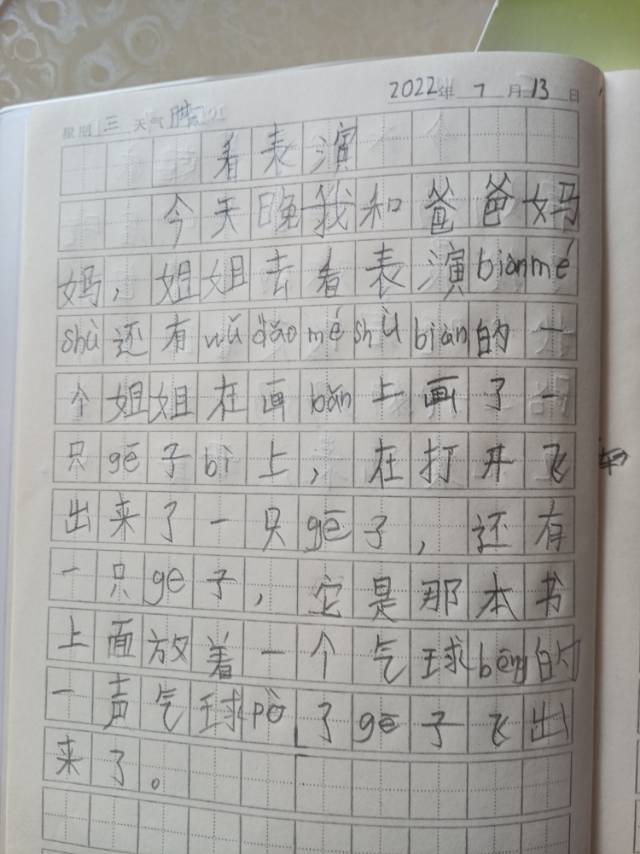 2022年 7月 13日
星期 三 天气 晴
看表演
今天晚我和爸爸妈
妈，姐姐去看表演biànmé
shù还有wǔdǎo mé shù biàn的一
个姐姐在画bǎn上画了一
只gē子bì上，在打开飞
出来了一只gē子，还有
一只gē子，它是那本书
上面放着一个气球bēng的
一声气球pò了gē子飞出
来了。